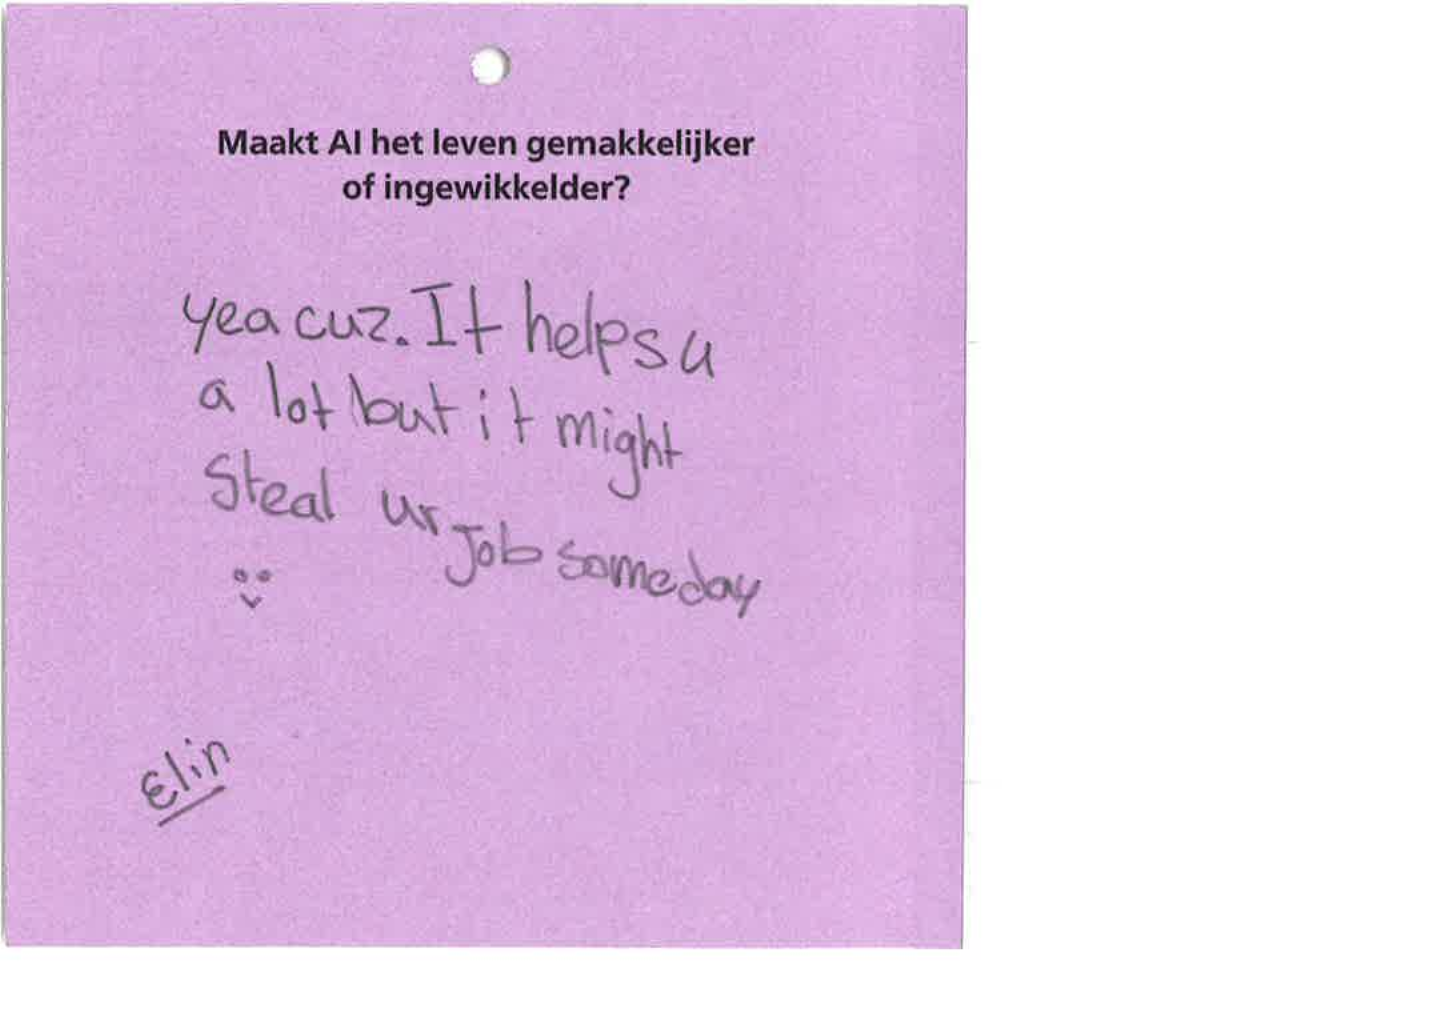 Maakt AI het leven gemakkelijker
of ingewikkelder?
yea cuz. It helps u
a lot but it might
Steal ur Job someday
Elin